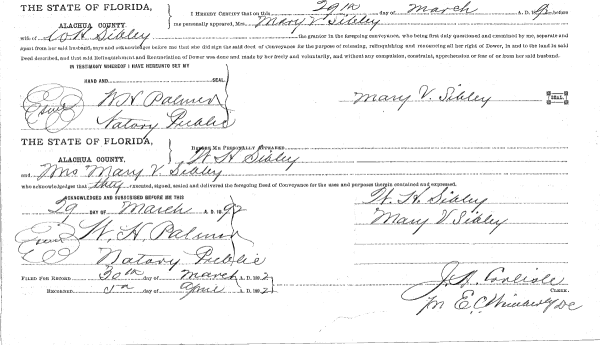 THE STATE OF FLORIDA,
ALACHUA COUNTY.
I HEREBY CERTIFY that on this 29th day of March A. D. 92 before
me personally appeared, Mrs. Mary V. Sibley
wife of W H Sibley the grantor in the foregoing conveyance, who being first duly questioned and examined by me, separate and
apart from her said husband, says and acknowledges before me that she did sign the said deed of Conveyance for the purpose of releasing, relinquishing and renouncing all her right of Dower, in and to the land in said
Deed described, and that said Relinquishment and Renunciation of Dower was done and made by her freely and voluntarily, and without any compulsion, constraint, apprehension or fear of or from her said husband.
IN TESTIMONY WHEREOF I HAVE HEREUNTO SET MY
HAND AND SEAL
W. H. Palmer
Notary Public
Mary V. Sibley
SEAL.
THE STATE OF FLORIDA,
ALACHUA COUNTY,
BEFORE ME PERSONALLY APPEARED W H Sibley
and Mrs Mary V. Sibley
who acknowledges that they executed, signed, sealed and delivered the foregoing Deed of Conveyance for the uses and purposes therein contained and expressed.
ACKNOWLEDGED AND SUBSCRIBED BEFORE ME THIS
29 DAY OF March A. D. 1892
W. H. Palmer
Notary Public
W. H. Sibley
Mary V Sibley
FILED FOR RECORD 30th day of March A. D. 1892
RECORDED day of April A. D. 1892
CLERK.